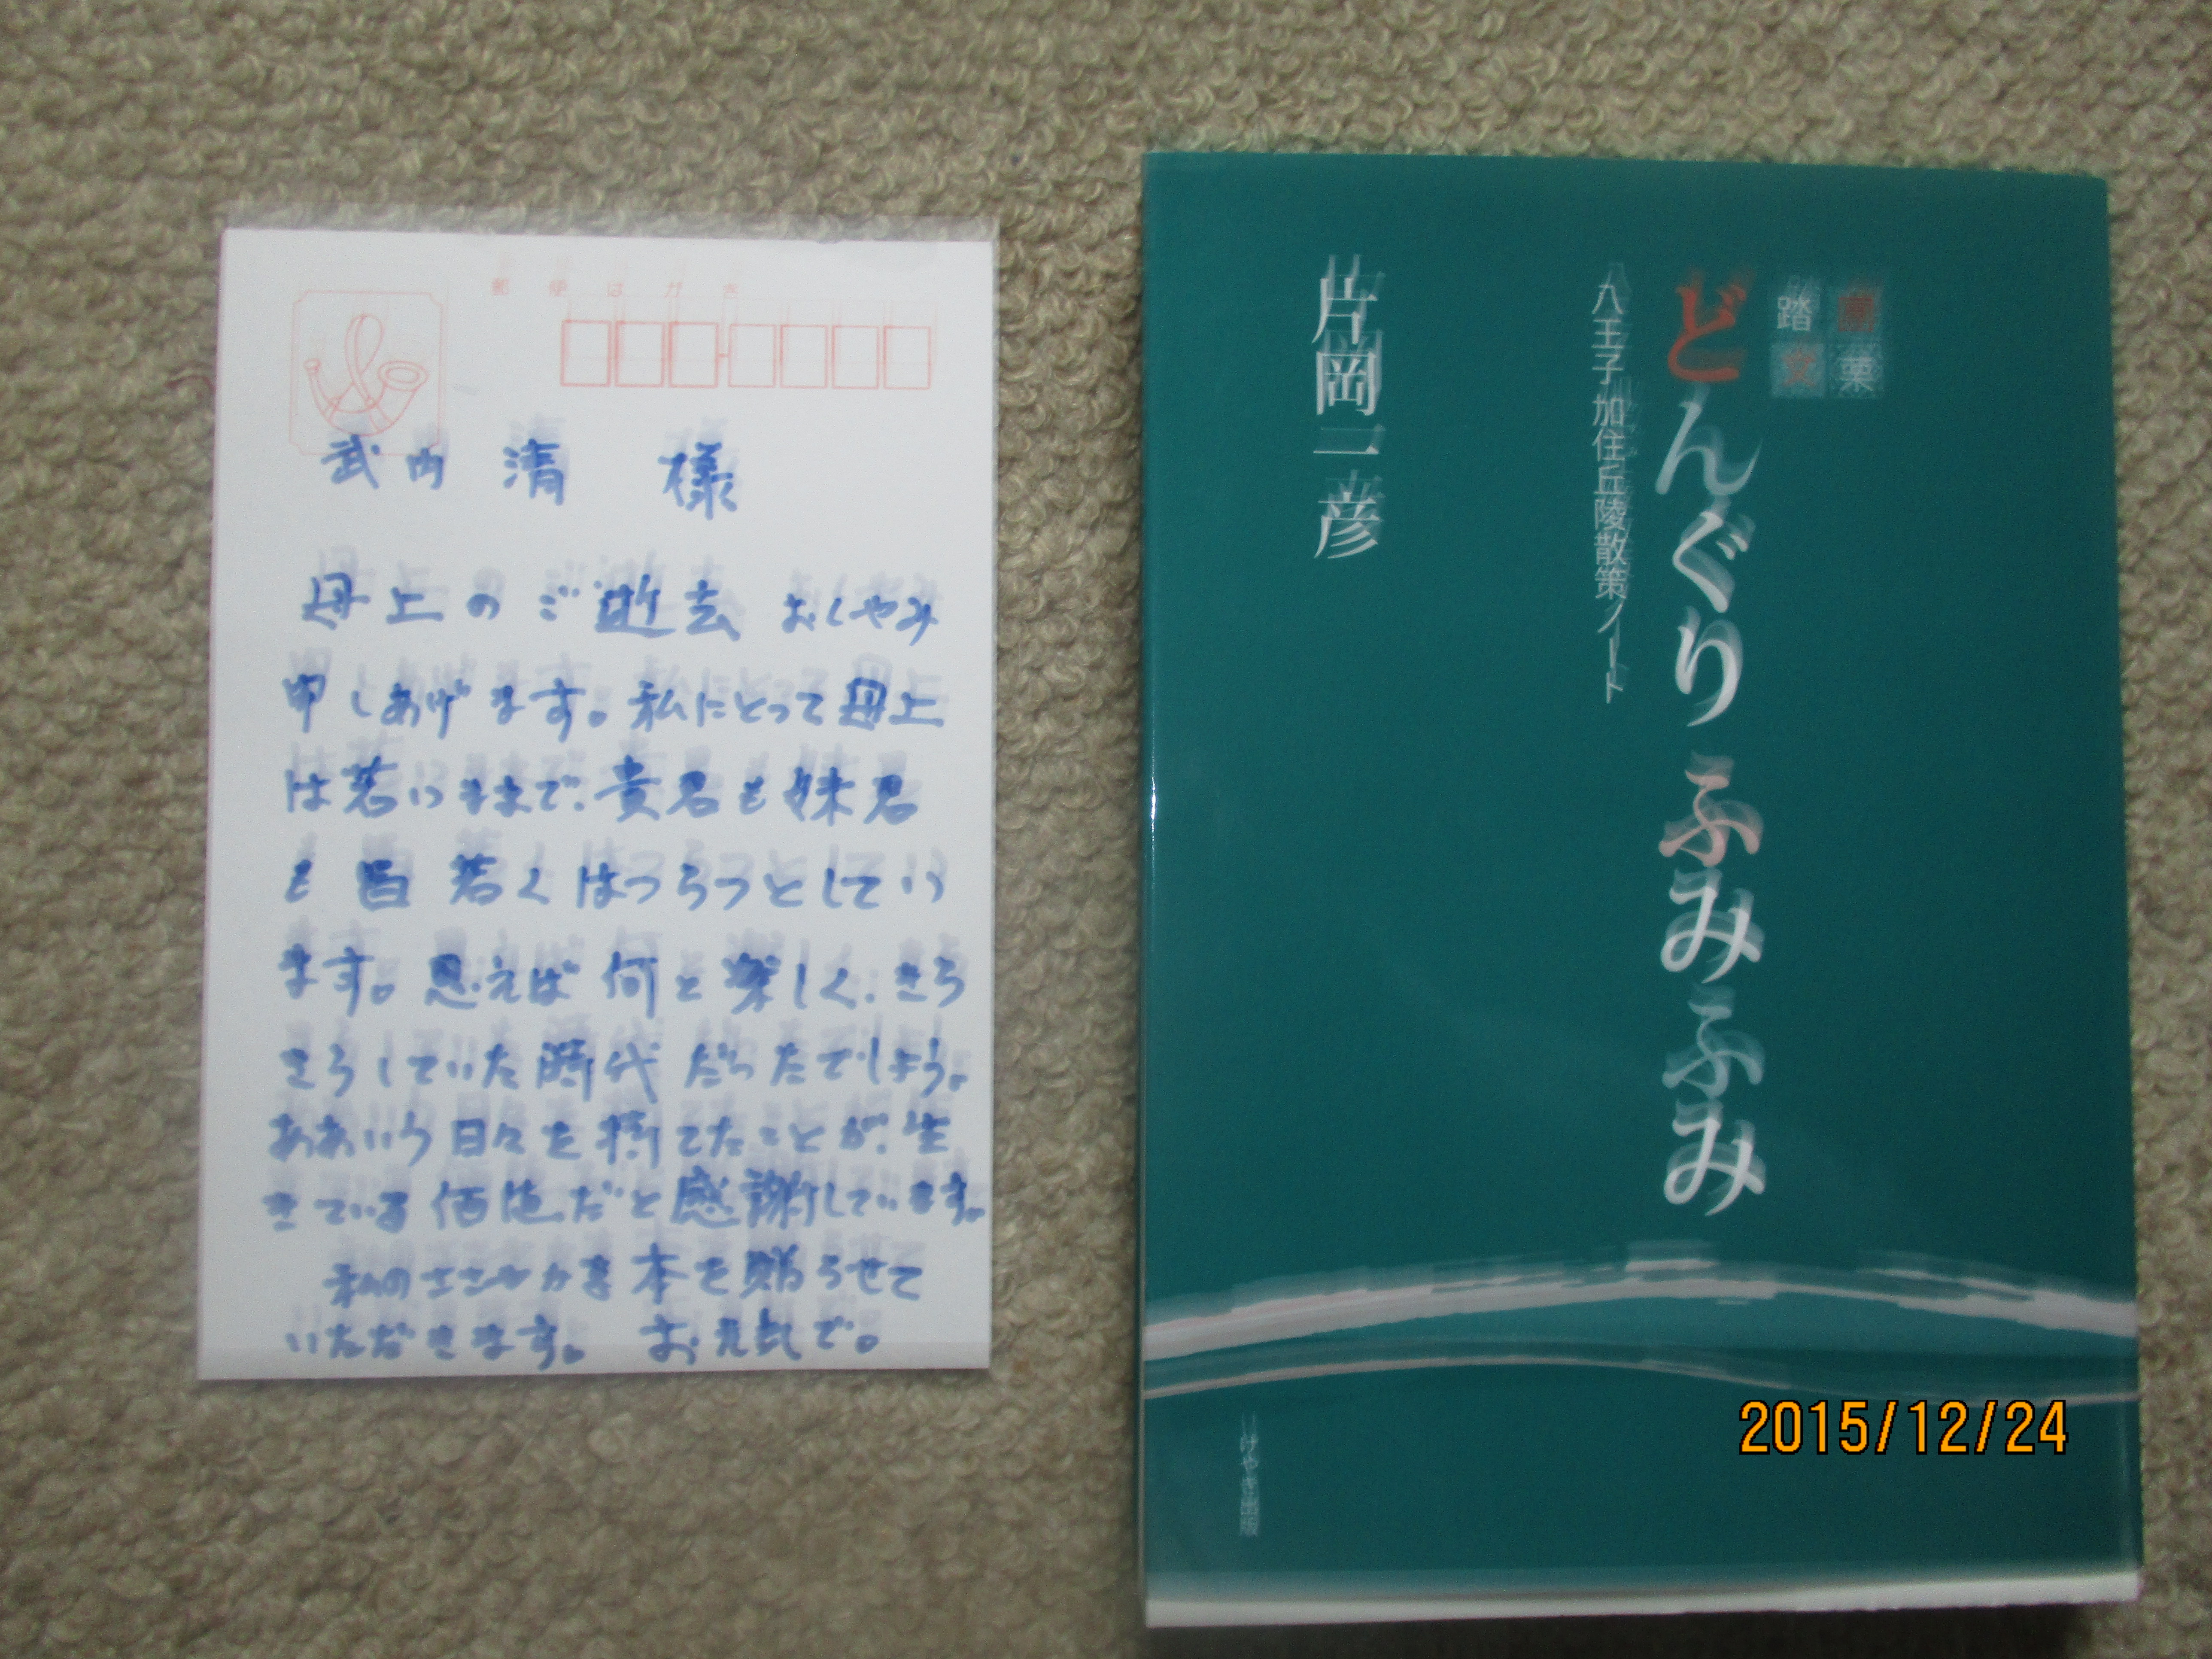 郵便はがき
武内 清 様
母上のご逝去 おくやみ
申しあげます。私にとって母上
は若いままで、貴君も妹君
も 皆 若くはつらつとしてい
ます。思えば何と楽しく、きら
きらしていた時代だったでしょう。
ああいう日々を持てたことが、生
きている価値だと感謝しています。
私のささやかな本を贈らせて
いただきます。 お元気で。
踏文
どんぐりふみふみ
八王子加住丘陵散策ノート
片岡一彦
けやき出版
2015/12/24